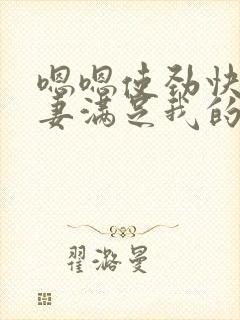 嗯嗯使劲快
妻满足我的
翟潞曼